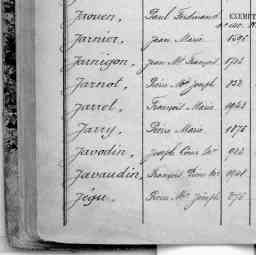 Jaouen, Paul Ferdinand
EXEMPT
Jarnier, Jean Marie 1596
Jarnigon, Jean Mie François 1724
Jarnot, Pierre Mie Joseph 832
Jarrel, François Marie 1948
Jarry, Pierre Marie 1876
Javodin, Joseph 922
Javaudin, François Pierre Mie 1941
Jégu, Pierre Mie Joseph 876